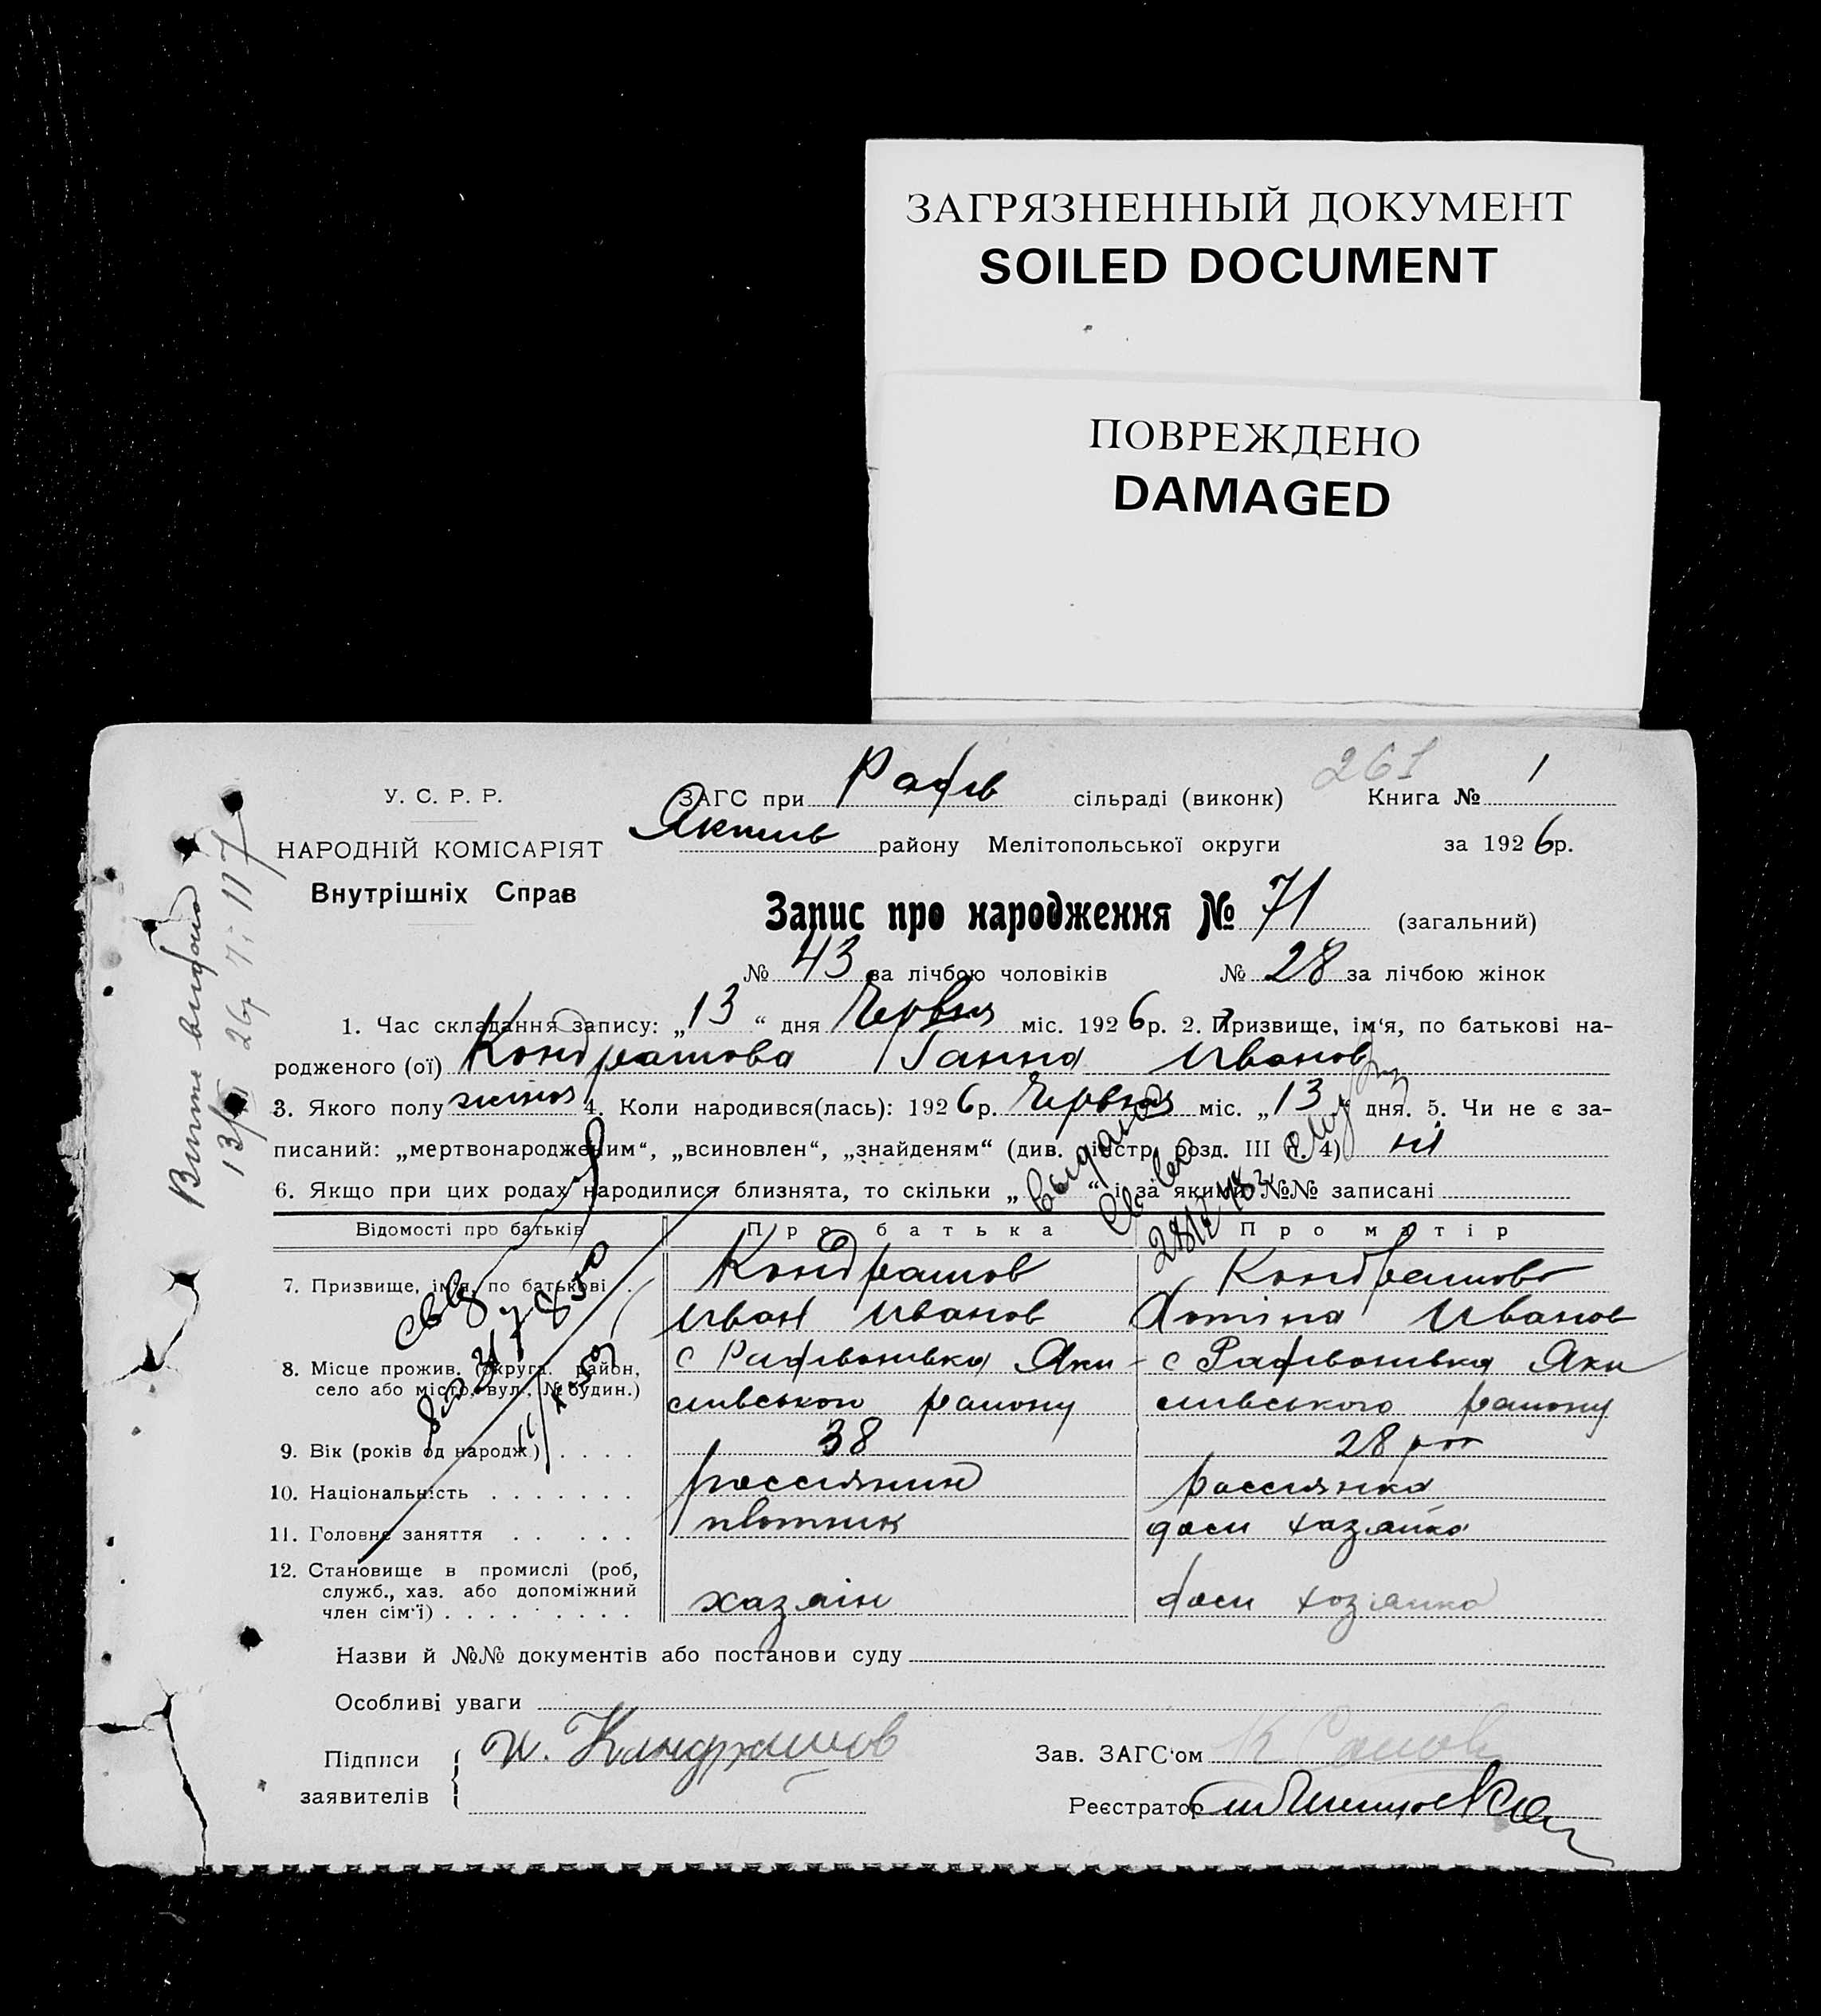 ЗАГРЯЗНЕННЫЙ ДОКУМЕНТ
SOILED DOCUMENT
ПОВРЕЖДЕНО
DAMAGED
261
У. С. Р. Р.
НАРОДНІЙ КОМІСАРІЯТ
Внутрішніх Справ
ЗАГС при Рафів сільраді (виконк) Книга № 1
Якимів району Мелітопольської округи за 1926р.
Запис про народження № 71 (загальний)
№ 43 за лічбою чоловіків № 28 за лічбою жінок
1. Час складання запису: „13“ дня Червня міс. 1926р. 2. Призвище, ім‘я, по батькові на-
родженого (ої) Кондрашова Ганна Иванов
3. Якого полу жіноч 4. Коли народився(лась): 1926р. Червня міс. „13“ дня. 5. Чи не є за-
писаний: „мертвонародженим“, „всиновлен“, „знайденям“ (див. розд. III п. 4) ні
6. Якщо при цих родах народилися близнята, то скільки „ “ і за якими №№ записані
Відомості про батьків Про батька Про матір
7. Призвище, ім‘я, по батькові Кондрашов Кондрашова
Иван Иванов Иванов
8. Місце прожив. (округа, район, с Рафивонивка Яки- с Рафивонивка Яки
село або місто, вул., № будин.) мивського району мивського району
9. Вік (років од народж.) 38 28
10. Національність россиянин россиянка
11. Головне заняття плотник хазяйка
12. Становище в промислі (роб,
служб., хаз. або допоміжний
член сім‘ї) хазяін хозяйка
Назви й №№ документів або постанови суду
Особливі уваги
Підписи заявителів И. Кандрашов
Зав. ЗАГС‘ом
Реєстратор